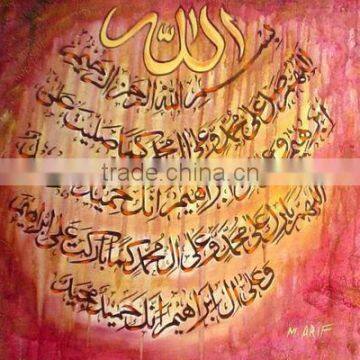 الله
بسم الله الرحمن الرحيم
اللهم صل على محمد وعلى ال محمد كما صليت على
ابرهيم وعلى ال ابرهيم انك حميد مجيد
trade.china.cn
اللهم بارك على محمد وعلى ال محمد كما باركت على ابرهيم
وعلى ال ابراهيم انك حميد مجيد
M. ARIF